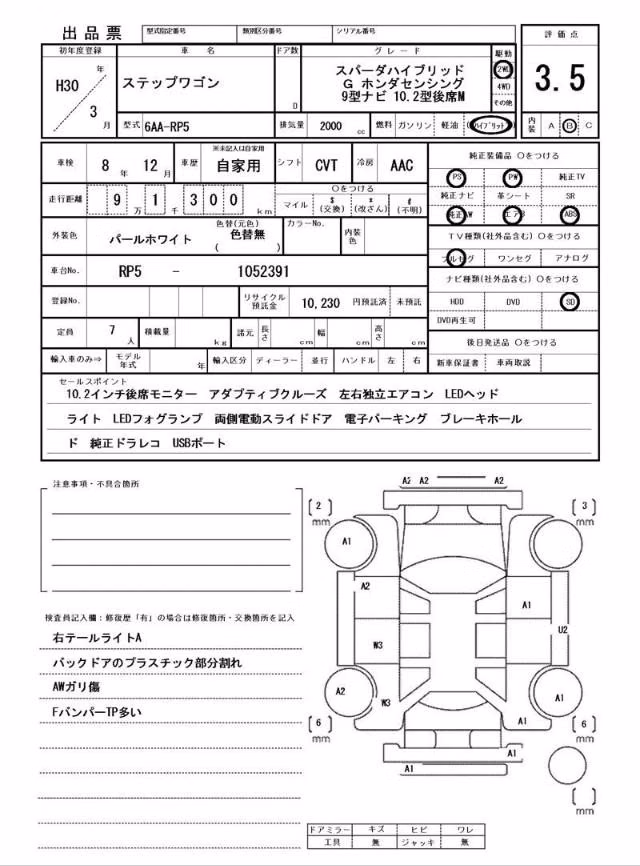 出品票 型式指定番号 類別区分番号 シリアル番号
評価点
3.5
内装 A B C
初年度登録 車名 ドア数 グレード 駆動
H30 年 3 月
ステップワゴン
D
スパーダハイブリッド
G ホンダセンシング
9型ナビ 10.2型後席M
2WD
4WD
その他
型式 6AA-RP5 排気量 2000 cc 燃料 ガソリン 軽油 (ハイブリット)
車検 8 年 12 月 車歴 ※未記入は自家用 自家用 シフト CVT 冷房 AAC
走行距離 9 万 1 千 3 0 0 km
〇をつける
マイル $(交換) *(改ざん) #(不明)
外装色 パールホワイト 色替(元色) 色替無 ( ) カラーNo. 内装色
車台No. RP5 - 1052391
登録No. リサイクル預託金 10,230 円預託済 未預託
定員 7 人 積載量 kg 諸元 長さ cm 幅 cm 高さ cm
輸入車のみ⇒ モデル年式 年 輸入区分 ディーラー 並行 ハンドル 左 右
純正装備品 〇をつける
PS PW 純正TV
純正ナビ 革シート SR
純正AW エアB ABS
TV種類(社外品含む) 〇をつける
フルセグ ワンセグ アナログ
ナビ種類(社外品含む) 〇をつける
HDD DVD SD
DVD再生可
後日発送品 〇をつける
新車保証書 車両取説
セールスポイント
10.2インチ後席モニター アダプティブクルーズ 左右独立エアコン LEDヘッド
ライト LEDフォグランプ 両側電動スライドドア 電子パーキング ブレーキホール
ド 純正ドラレコ USBポート
注意事項・不具合箇所
検査員記入欄：修復歴「有」の場合は修復箇所・交換箇所を記入
右テールライトA
バックドアのプラスチック部分割れ
AWガリ傷
FバンパーTP多い
A2 A2 A2
[2] mm [3] mm
A1
A2
A1
U2
W3
A2 W3 A1 A1
[6] mm [6] mm
A1
A1
[ ] mm
ドアミラー キズ ヒビ ワレ
工具 無 ジャッキ 無